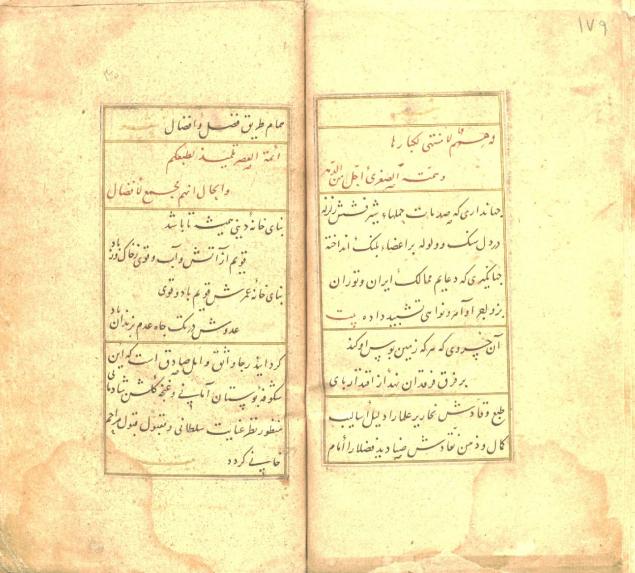 ۱۷۹
له همم لا منتهی لکبارها
و همته الصغری اجل من الدهر
جهانداری که صدمات حملهاء شیر فشش زلزله
در دل سنک و ولوله بر اعضاء پلنک انداخته
جهانگیری که دعایم ممالک ایران و توران
بزواهر اوامر و نواهی تشیید داده بیت
آن خسروی که هر که زمین بوس او کند
بر فرق فرقدان نهد از اقتدار پای
طبع وقادش نحاریر علما را دلیل اسالیب
کمال و ذهن نقادش صنادید فضلا را امام
همام طریق فضل و افضال
ائمة العصر تلمیذ لطبعکم
والحال انهم مجمع لافضال
بنای خانه دینی همیشه تا باشد
قویم از آتش و آب و قوی ز خاک و ز باد
بنای خانه عمرش قویم باد و قوی
عدوش در تک چاه عدم بزندان باد
کردانید رجا واثق و امل صادق است که این
شکوفه بوستان آمانی و غنچه کلشن شادمانی
منظور نظر عنایت سلطانی و مقبول قبول مراحم
خانی کردد